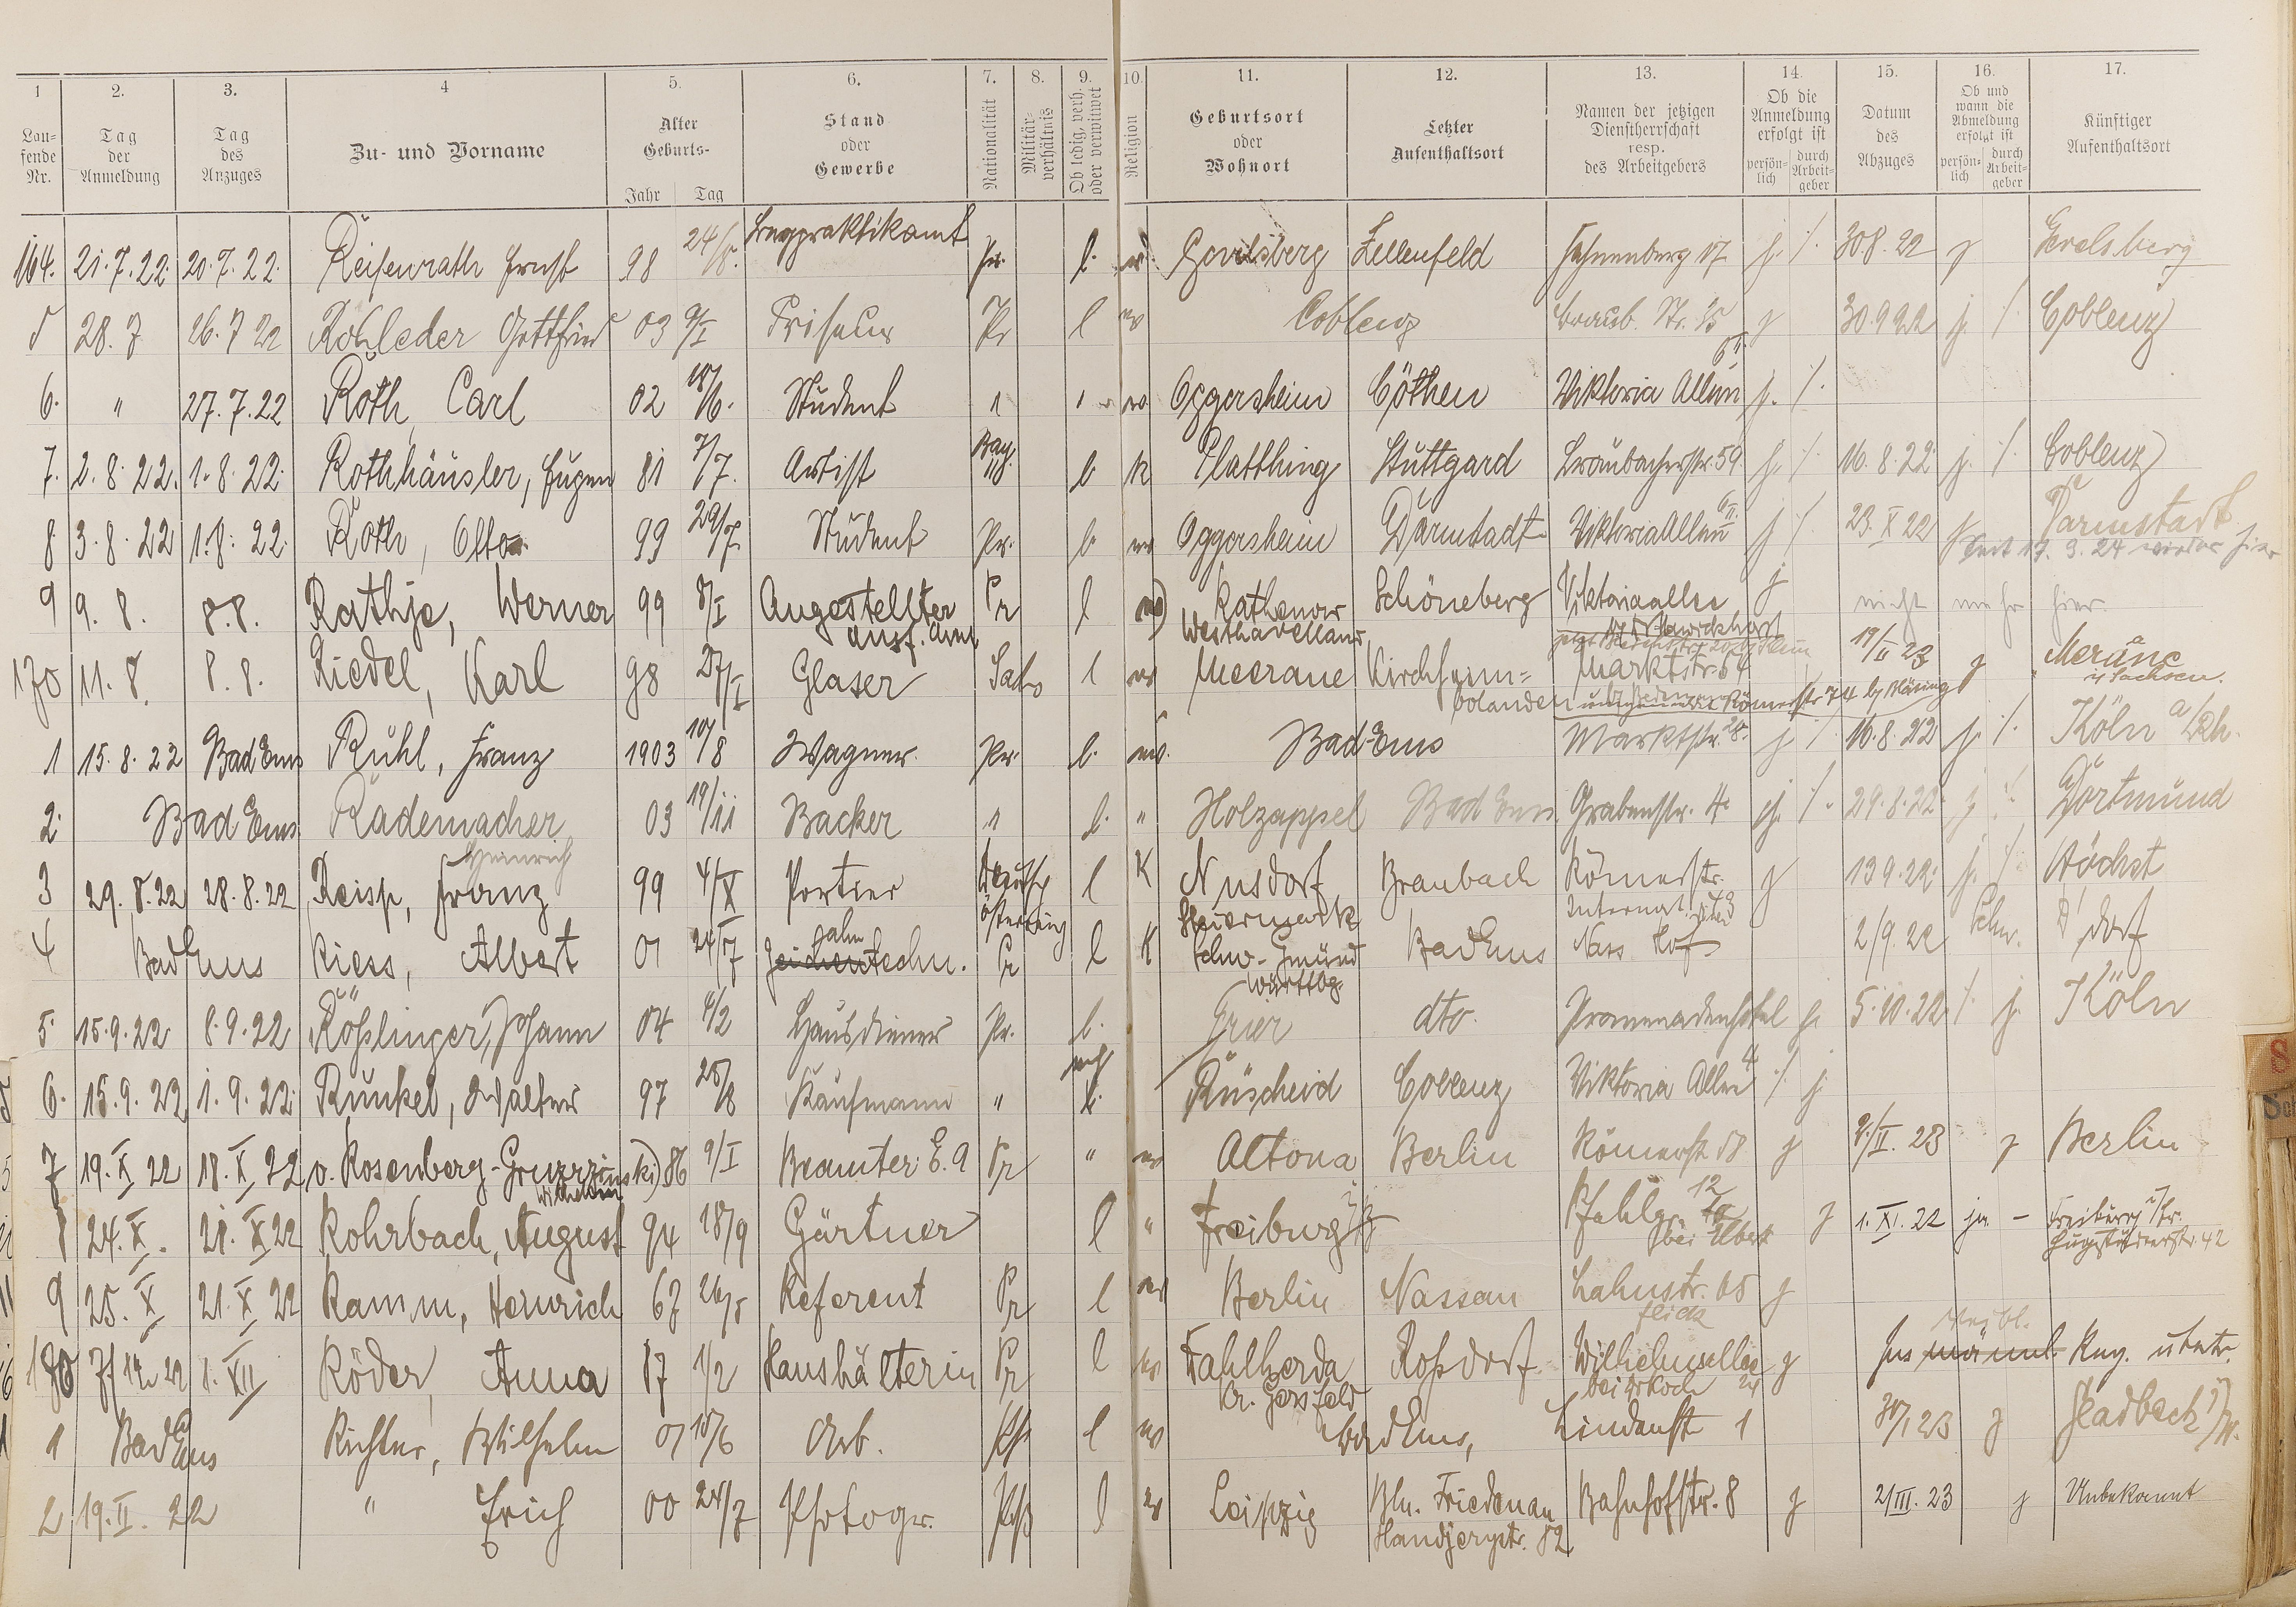 1 2. 3. 4 5. 6. 7. 8. 9. 10. 11. 12. 13. 14. 15. 16. 17.
Lau-fende Nr. Tag der Anmeldung Tag des Anzuges Zu- und Vorname Alter Geburts- Jahr Tag Stand oder Gewerbe Nationalität Militär-verhältnis Ob ledig, verh. oder verwitwet Religion Geburtsort oder Wohnort Letzter Aufenthaltsort Namen der jetzigen Dienstherrschaft resp. des Arbeitgebers Ob die Anmeldung erfolgt ist persön-lich durch Arbeit-geber Datum des Abzuges Ob und wann die Abmeldung erfolgt ist persön-lich durch Arbeit-geber Künftiger Aufenthaltsort
164. 21.7.22. 20.7.22. Reifenrath Ernst 98 24/8. Bergpraktikant Pr. l. Gevelsberg Zellenfeld Hahnenberg 17 j. /. 30.8.22 j Gevelsberg
5 28.7 26.7 22 Rohleder Gottfried 03 9/I Friseur Pr l Coblenz Braub. Str. 35 j 30.9 22 j. /. Coblenz
6. " 27.7.22 Roth, Carl 02 18/6. Student " " Oggersheim Cöthen Viktoria Allee 6 II j. /.
7. 2.8.22. 1.8.22. Rothhäusler, Eugen 81 7/7. Artist Bay. l. K Platthing Stuttgard Braubacherstr. 59. j. /. 16.8.22. j. /. Coblenz
8. 3.8.22 1.8.22. Roth, Otto 99 29/7. Student Pr. l. Oggersheim Darmstadt Viktoria Allee 6 II j /. 23.X 22 j Darmstadt
seit 17.3.24 wieder hier
9 9.8. 8.8. Rathje, Werner 99 8/I Angestellter Pr l Rathenow Schöneberg Viktoriaallee j nicht mehr hier.
Ausf. Amt Westhavelland
170 11.8. 8.8. Riedel, Karl 98 27/I Glaser Sachs l Meerane Kirchheim= Marktstr. 54 19/II 23 j Merane
bolanden Römerstr 74 i/ Sachsen.
1 15.8.22 Bad Ems Ruhl, Franz 1903 10/8 Wagner Pr. l. Bad-Ems Marktstr. 28. j /. 16.8.22 j. /. Köln a/Rh.
2. Bad Ems Rademacher, 03 19/11 Backer " l. " Holzappel Bad Ems Grabenstr. 4 j. /. 29.8.22. j /. Dortmund
Heinrich
3 29.8.22 28.8.22 Reisp, Franz 99 4/X Portier Deutsch l K Nusdorf Braubach Römerstr. j 13 9.22. j. /. Höchst
Österreich Steiermark Internat.
4 Bad Ems Riess, Albert 01 24/7 Zeichentechn. Pr l K Schw-Gmünd Bad Ems Nass Hof 2/9.22 Schw. D'dorf
Zahn Württbg.
5. 15.9.22 8.9.22 Rößlinger, Johann 04 4/2 Hausdiener Pr. l. Trier dto. Promenadenhotel j. 5.10.22. /. j. Köln
6. 15.9.22 1.9.22. Runkel, Walter 97 25/8 Kaufmann " l. Rüscheid Coblenz Viktoria Allee 4 /. j.
7 19.X 22 18.X 22 v. Rosenberg-Gruszczinski) 86 9/I Beamter E.A Pr " Altona Berlin Römerst. 18 j 2/II.23 j Berlin
Wilhelm
8 24.X. 21.X 22 Rohrbach, August 94 18/9 Gärtner l " Freiburg i/B Pfahlgr. 12 j 1.XI.22 ja — Freiburg i/Br.
bei Elbert 42
9 25.X 21.X 22 Ramm, Heinrich 67 26/5 Referent Pr l Berlin Nassau Lahnstr. 65 j
Flick
180 7/12 22 1.XII Röder, Anna 87 1/2 Haushälterin Pr l Fahlherda Roßdorf Wilhelmsallee j Ins männl. Reg. übertr.
weibl.
Kr. Gersfeld bei Koch
1 Bad Ems Richter, Wilhelm 01 10/6 Arb. l Bad Ems, Lindenst 1 30/1 23 j Gladbeck i/W.
2 19.II.22 " Erich 00 24/7 Photogr. l Leipzig Bln. Friedenau Bahnhofstr. 8 j 2/III.23 j Unbekannt
Handjerystr. 82